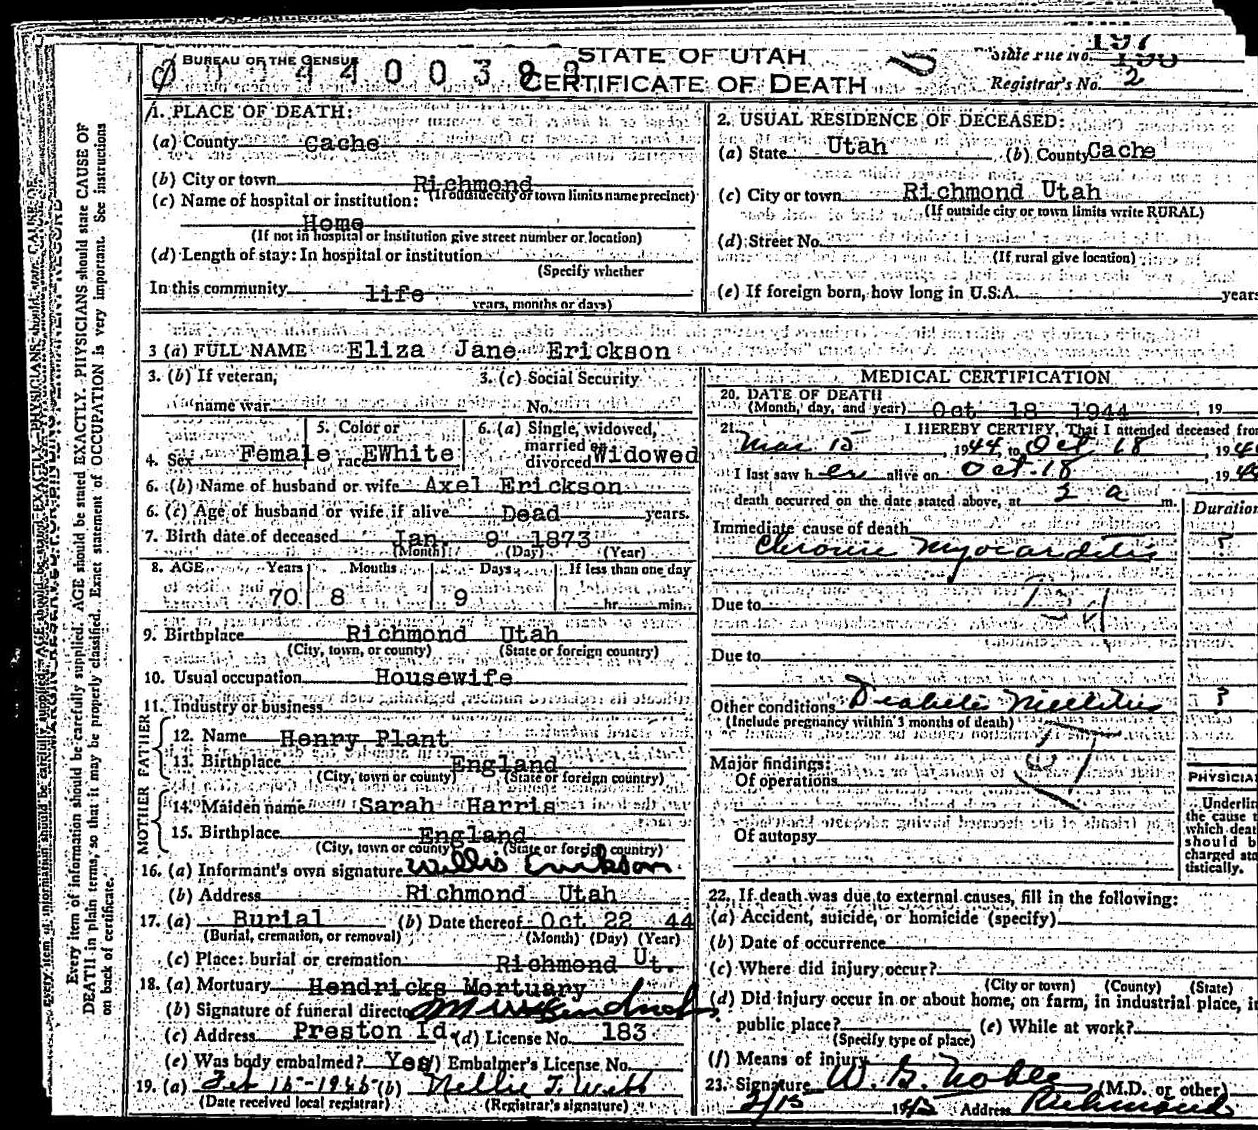 BUREAU OF THE CENSUS
STATE OF UTAH
CERTIFICATE OF DEATH
State File No. 197
Registrar's No. 2
1. PLACE OF DEATH:
(a) County Cache
(b) City or town Richmond
(If outside city or town limits name precinct)
(c) Name of hospital or institution:
Home
(If not in hospital or institution give street number or location)
(d) Length of stay: In hospital or institution
(Specify whether
In this community life
years, months or days)
2. USUAL RESIDENCE OF DECEASED:
(a) State Utah (b) County Cache
(c) City or town Richmond Utah
(If outside city or town limits write RURAL)
(d) Street No.
(If rural give location)
(e) If foreign born, how long in U.S.A. years
3 (a) FULL NAME Eliza Jane Erickson
3. (b) If veteran, name war
3. (c) Social Security No.
4. Sex Female
5. Color or race White
6. (a) Single, widowed, married or divorced Widowed
6. (b) Name of husband or wife Axel Erickson
6. (c) Age of husband or wife if alive Dead years.
7. Birth date of deceased Jan. 9 1873
(Month) (Day) (Year)
8. AGE Years Months Days If less than one day
70 8 9 hr. min.
9. Birthplace Richmond Utah
(City, town, or county) (State or foreign country)
10. Usual occupation Housewife
11. Industry or business
FATHER
12. Name Henry Plant
13. Birthplace England
(City, town or county) (State or foreign country)
MOTHER
14. Maiden name Sarah Harris
15. Birthplace England
(City, town or county) (State or foreign country)
16. (a) Informant's own signature Willis Erickson
(b) Address Richmond Utah
17. (a) Burial (b) Date thereof Oct 22 44
(Burial, cremation, or removal) (Month) (Day) (Year)
(c) Place: burial or cremation Richmond Ut.
18. (a) Mortuary Hendricks Mortuary
(b) Signature of funeral director
(c) Address Preston Id. (d) License No. 183
(e) Was body embalmed? Yes (f) Embalmer's License No.
19. (a) Feb 16-1945 (b) Nellie T. Webb
(Date received local registrar) (Registrar's signature)
MEDICAL CERTIFICATION
20. DATE OF DEATH
(Month, day, and year) Oct 18 1944, 19
21. I HEREBY CERTIFY, That I attended deceased from
Mar 15, 1944, to Oct 18, 194
I last saw her alive on Oct-18, 194
death occurred on the date stated above, at 3 a m.
Duration
Immediate cause of death
Chronic Myocarditis ?
Due to
Due to
Other conditions Diabetes Mellitus ?
(Include pregnancy within 3 months of death)
Major findings:
Of operations
Of autopsy
PHYSICIA
Underlin
the cause t
which deat
should b
charged sta
tistically.
22. If death was due to external causes, fill in the following:
(a) Accident, suicide, or homicide (specify)
(b) Date of occurrence
(c) Where did injury occur?
(City or town) (County) (State)
(d) Did injury occur in or about home, on farm, in industrial place, in
public place? (e) While at work?
(Specify type of place)
(f) Means of injury
23. Signature W. G. Noble (M.D. or other)
2/15 Address Richmond
Every item of information should be carefully supplied. AGE should be stated EXACTLY. PHYSICIANS should state CAUSE OF
DEATH in plain terms, so that it may be properly classified. Exact statement of OCCUPATION is very important. See instructions
on back of certificate.